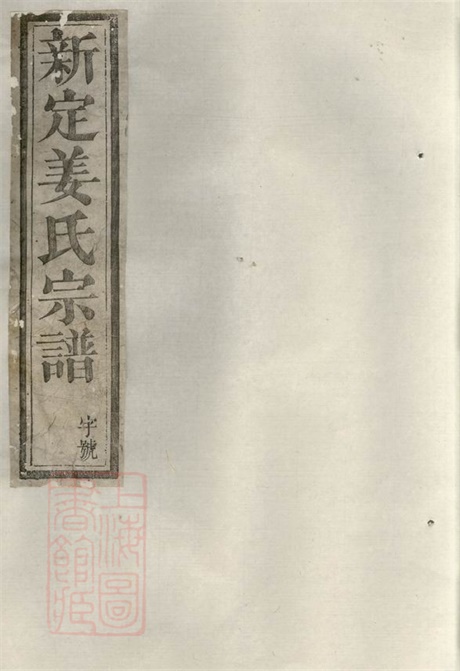 新定姜氏宗譜
字號
上海圖
書館藏